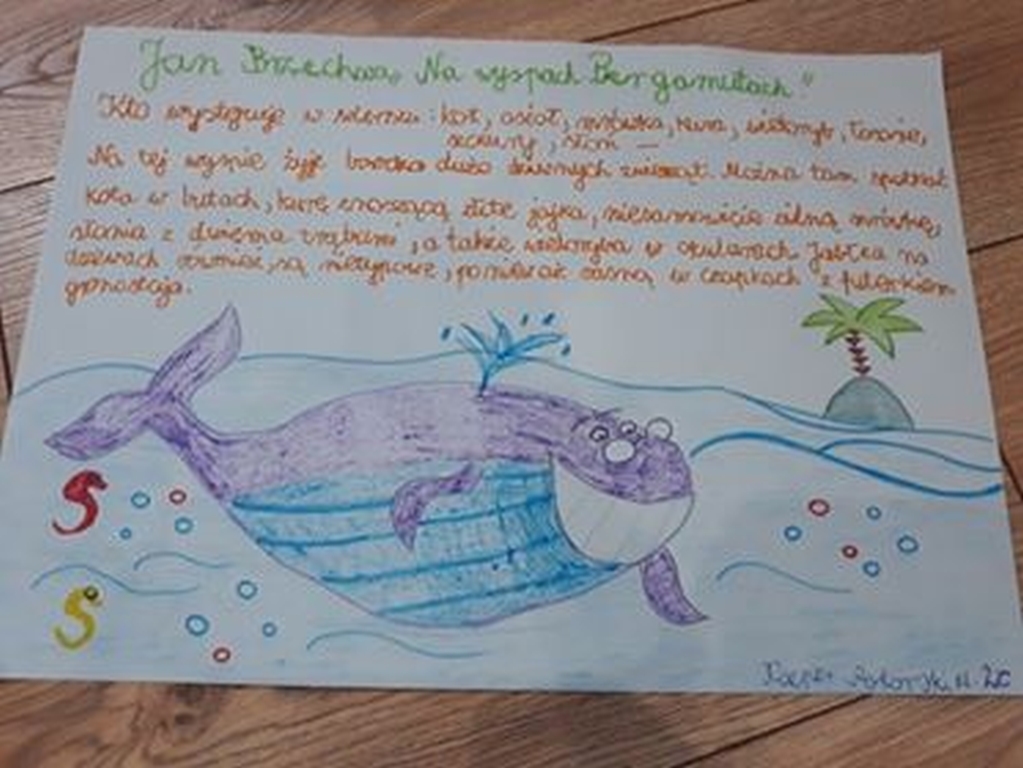 Jan Brzechwa „Na wyspach Bergamutach"
Kto występuje w wierszu: kot, osioł, mrówka, kura, wieloryb, łososie,
słoń —
Na tej wyspie żyje bardzo dużo dziwnych zwierząt. Można tam spotkać
kota w butach, kurę znoszącą złote jajka, niesamowicie silną mrówkę,
słonia z dwiema trąbami, a także wieloryba w okularach. Jabłka na
drzewach również są nietypowe, ponieważ rosną w czapkach z futerkiem
gronostaja.
Kacper